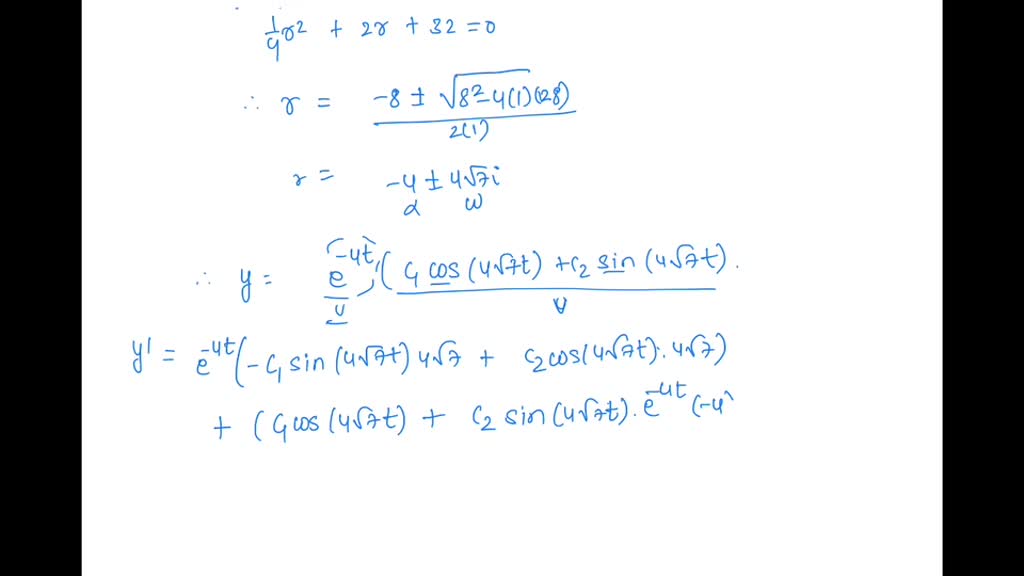 1/4 r² + 2r + 32 = 0
∴ r = (-8 ± √(8² - 4(1)(128))) / 2(1)
r = -4 ± 4√7i
α ω
∴ y = e^(-4t) (C₁ cos(4√7t) + C₂ sin(4√7t).
U V
y' = e^(-4t)(-C₁ sin(4√7t) 4√7 + C₂ cos(4√7t). 4√7)
+ (C₁ cos(4√7t) + C₂ sin(4√7t). e^(-4t) (-4)